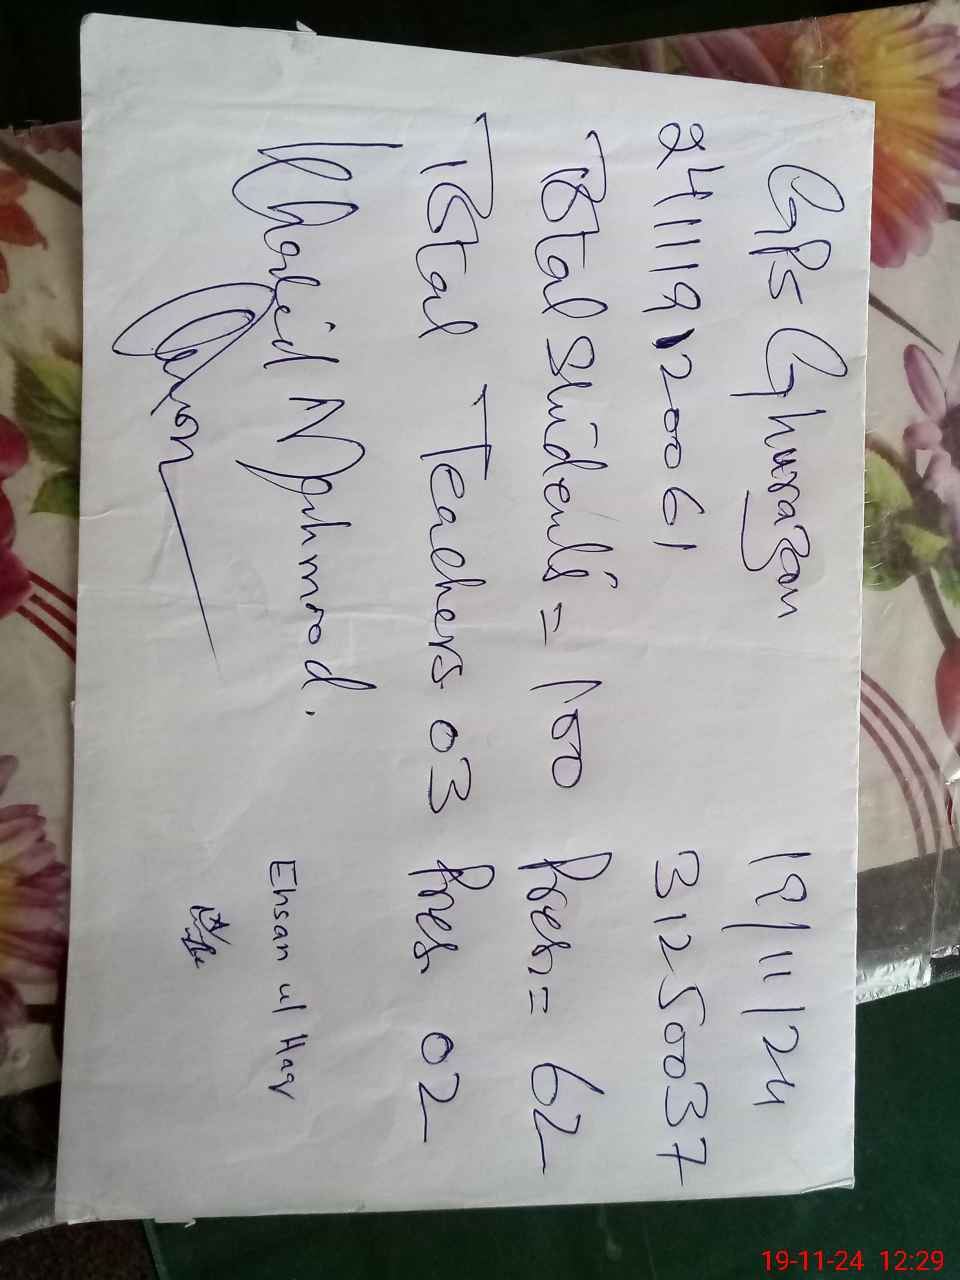 GPS Ghurazan 19/11/24
24119120061 31250037
Total Students = 100 Pres = 62
Total Teachers 03 Pres 02
Khalid Mahmood. Ehsan ul Haq
19-11-24 12:29